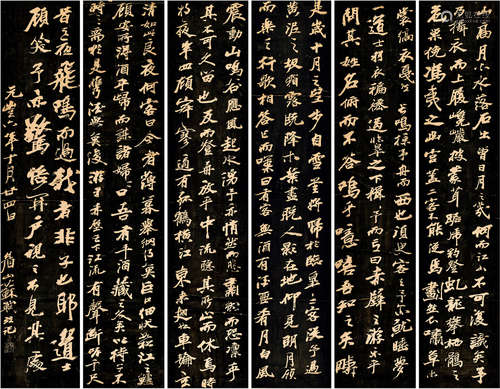 山高月小水落石出曾日月之幾何而江山不可復識矣予
乃攝衣而上履巉巖披蒙茸踞虎豹登虬龍攀栖鶻
危巢俯馮夷之幽宮蓋二客不能從焉劃然長嘯草木
裳縞衣戛然長鳴掠予舟而西也須臾客去予亦就睡夢
一道士羽衣翩僊過臨皋之下揖予而言曰赤壁之遊樂乎
問其姓名俛而不答嗚乎噫嘻吾知之矣疇
是歲十月之望步自雪堂將歸於臨皋二客從予過
黃泥之坂霜露既降木葉盡脫人影在地仰見明月顧
而樂之行歌相答已而嘆曰有客無酒有酒無肴月白風
震動山鳴谷應風起水涌予亦悄然而悲肅然而恐凜乎
其不可久留也反而登舟放乎中流聽其所止而休焉時
將夜半四顧寂寥適有孤鶴橫江東來翅如車輪玄
清如此良夜何客曰今者薄暮舉網得魚巨口細鱗狀似松江之鱸
顧安所得酒乎歸而謀諸婦婦曰吾有斗酒藏之久矣以待子不
時之需於是攜酒與魚復遊於赤壁之下江流有聲斷岸千尺
昔之夜飛鳴而過我者非子也耶道士
顧笑予亦驚悟開戶視之不見其處
元豐六年十月廿四日
眉山蘇軾記